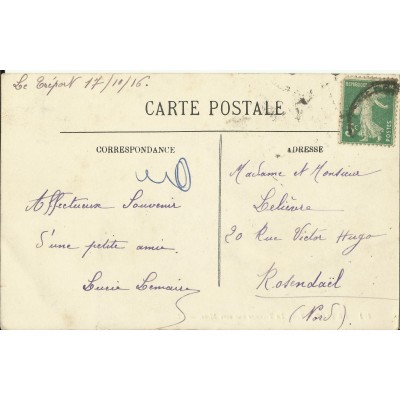 Le Tréport 17/10/16.
CARTE POSTALE
CORRESPONDANCE
ADRESSE
Affectueux Souvenir
d'une petite amie.
Lucie Lemaire
Madame et Monsieur
Lelièvre
20 Rue Victor Hugo
Rosendaël
(Nord).
POSTES